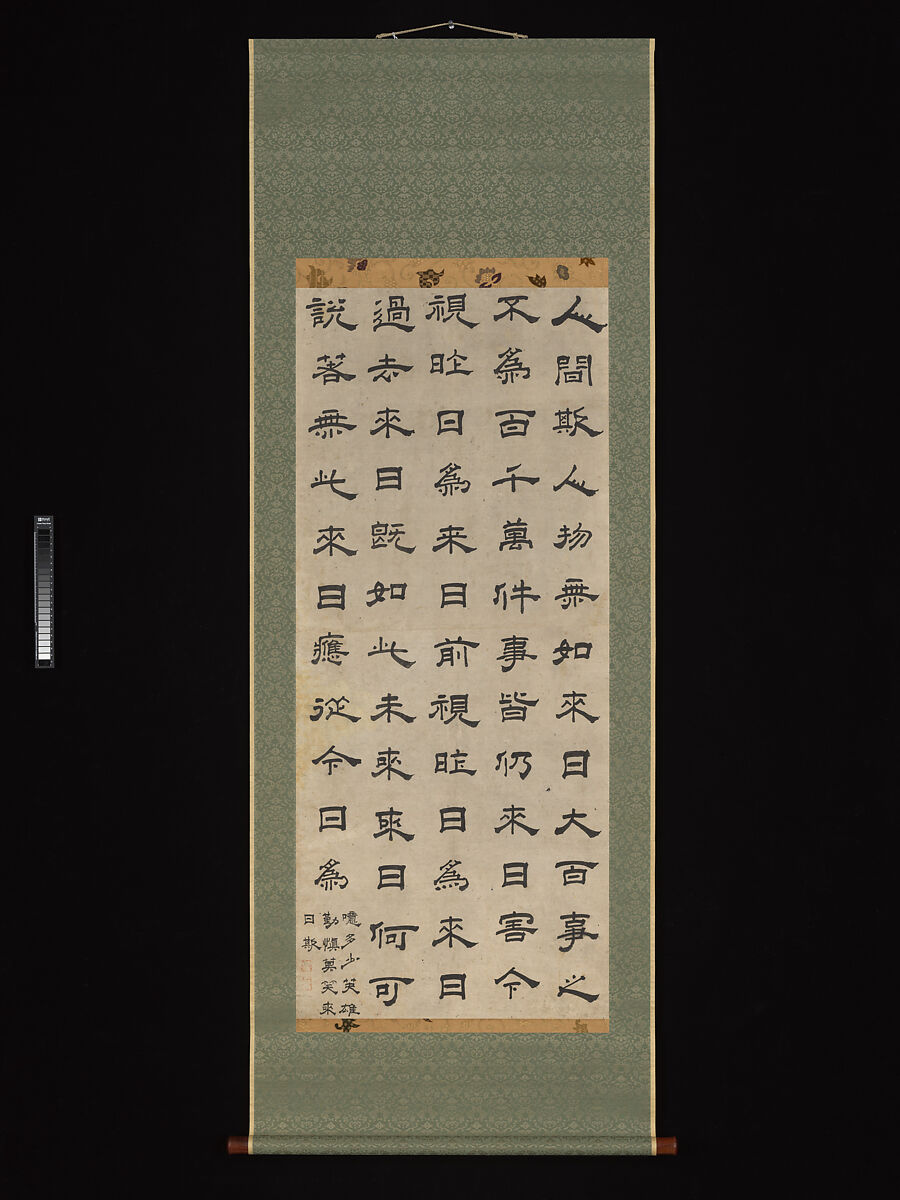 人間斯人物無如來日大百事之
不爲百千萬件事皆仍來日害今
視昨日爲来日前視昨日爲來日
過去來日既如此未來來日何可
說著無此來日應從今日爲
多少英雄
勤慎莫笑來
日斯